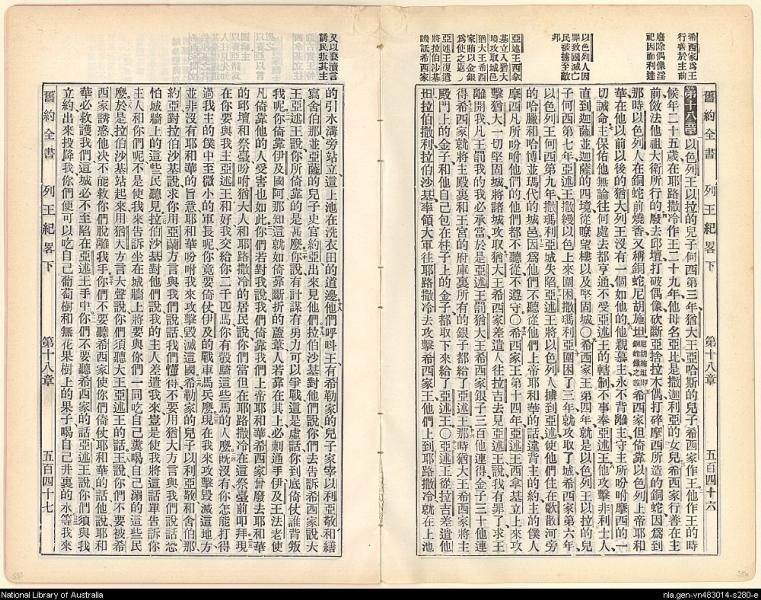 希西家爲王
行善於主前
廢除偶像淫
祀因而利達
以色列人因
罪致國滅亡
民被擄至敵
邦
亞述王西拿
基立入猶大
境攻取城邑
猶大王希西
家賄以金銀
爲使之退
亞述王復遣
將拉伯沙基
譏誚希西家
舊約全書 列王紀畧下 第十八章 五百四十六
第十八章 以色列王以拉的兒子何西第三年猶大王亞哈斯的兒子希西家作王他作王的時
候年二十五歲在耶路撒冷作王二十九年他母名亞比是撒迦利亞的女兒希西家行善在主
前傚法他祖大衛所行的廢去邱壇打破偶像砍斷亞捨拉木偶打碎摩西所造的銅蛇因爲到
那時以色列人在銅蛇前燒香又稱銅蛇尼胡施坦希西家但倚靠以色列上帝耶和
華在他以前以後的猶大列王沒有一個如他的他親慕主永不背離主守主所吩咐摩西的一
切誡命主保佑他無論往何處去都亨通不受亞述王的轄制不事奉亞述王他攻擊非利士人
直到迦薩並迦薩的四境從瞭望樓以及堅固城〇希西家王第四年就是以色列王以拉的兒
子何西第七年亞述王撒縵以色上來圍困撒瑪利亞圍困了三年就攻取了城希西家第六年
以色列王何西第九年撒瑪利亞城失陷亞述王將以色列人擄到亞述使他們住在歌散河旁
的哈臘和哈博並瑪代的城邑因爲他們不聽從他們上帝耶和華的話違背主的約主的僕人
摩西凡所吩咐他們的他們都不聽從不遵守〇希西家王第十四年亞述王西拿基立上來攻
擊猶大一切堅固城將諸城攻取猶大王希西家差遣人往拉吉去見亞述王說我有罪了求王
離開我凡王罰我的我必承當於是亞述王罰猶大王希西家銀子三百他連得金子三十他連
得希西家就將主殿裏和王宮的府庫裏所有的銀子都給了亞述王那時猶大王希西家將主
殿門上的金子和他自己包在柱子上的金子都取下來給了亞述王〇亞述王從拉吉差遣他
珥坦拉伯撒利拉伯沙基率領大軍往耶路撒冷去攻擊希西家王他們上到耶路撒冷就在上池
又以褻瀆言
誘民叛其主
的引水溝旁站立這上池在洗衣田的道邊他們呼叫王有希勒家的兒子家宰以利亞敬和繕
寫舍伯那並亞薩的兒子史官約亞出來見他們拉伯沙基對他們說你們去告訴希西家說大
王亞述王說你所倚靠的是甚麼你說有計謀有勇力可以爭戰這是虛話你到底倚仗誰背叛
我呢你倚靠伊及國阿那知這就如倚靠斷折的蘆葦人若靠在其上必刺通手伊及王法老使
凡倚靠他的人受害也如此你們若對我說我們倚靠我們上帝耶和華希西家曾廢去耶和華
的邱壇和祭臺吩咐猶大人和耶路撒冷的居民說你們當但在耶路撒冷的這祭臺前叩拜現
在你要與我主亞述王和好我交給你二千匹馬你有幾騎這些馬的人麼既沒有你怎能打得
過我主的僕中至微小的軍長呢你竟要倚仗伊及的戰車馬兵麼現在我來攻擊毀滅這地方
並非沒有耶和華的旨意耶和華吩咐我來攻擊毀滅這國希勒家的兒子以利亞敬和舍伯那
約亞對拉伯沙基說求你用亞蘭方言與我們說話我們懂得不要用猶大方言與我們說話恐
怕城牆上的這些民聽見拉伯沙基對他們說我的主人差遣我來豈是使我將這話單告訴你
主人和你們呢不是使我來告訴坐在城牆上將要與你們一同吃自己糞喝自己溺的這些民
麼於是拉伯沙基站起來用猶大方言大聲說你們須聽大王亞述王的話王說你們不要被希
西家誘惑他決不能救你們脫離我手你們不要聽希西家使你們倚仗耶和華的話他說耶和
華必救護我們這城必不至陷在亞述王手中你們不要聽希西家的話亞述王說你們須與我
立約出來投降我你們便可以吃自己葡萄樹和無花果樹上的果子喝自己井裏的水等我來
舊約全書 列王紀畧下 第十八章 五百四十七
National Library of Australia
nla.gen-vn483014-s280-e